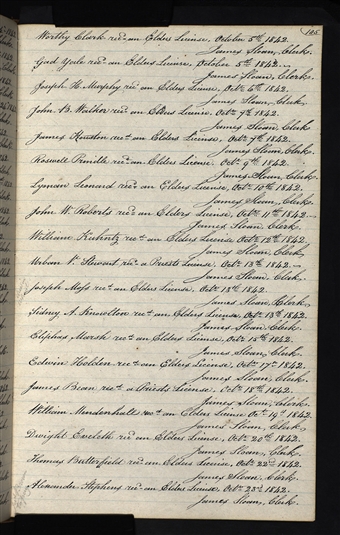 105
Worthy Clark rec.d an Elders License, October 5th 1842.
James Sloan, Clerk.
Gad Yale rec.d an Elders License, October 5th 1842.
James Sloan, Clerk.
Joseph H. rec.d an Elders License, Octr. 6th 1842.
James Sloan, Clerk.
John B. Walker rec.d an Elders License, Octr. 7th 1842.
James Sloan, Clerk.
James Houston rec.d an Elders License, Octr. 7th 1842.
James Sloan, Clerk.
Roswell rec.d an Elders License, Octr. 9th 1842.
James Sloan, Clerk.
Lyman Leonard rec.d an Elders License, Octr. 10th 1842.
James Sloan, Clerk.
John W. Roberts rec.d an Elders License, Octr. 11th 1842.
James Sloan, Clerk.
William rec.d an Elders License Octr. 12th 1842.
James Sloan, Clerk.
Urban V. Stewart rec.d a Priests License, Octr. 13th 1842.
James Sloan, Clerk.
Joseph rec.d an Elders License, Octr. 13th 1842.
James Sloan, Clerk.
Sidney A. Knowlton rec.d an Elders License, Octr. 13th 1842.
James Sloan, Clerk.
Eliphas Marsh rec.d an Elders License, Octr. 15th 1842.
James Sloan, Clerk.
Edwin Holden rec.d an Elders License, Octr. 17th 1842.
James Sloan, Clerk.
James Bean rec.d a Priests License, Octr. 18th 1842.
James Sloan, Clerk.
William Mendenhall rec.d an Elders License Oct. 19th 1842.
James Sloan, Clerk.
Dwight Eveleth rec.d an Elders License, Octr. 20th 1842.
James Sloan, Clerk.
Thomas Butterfield rec.d an Elders License, Octr. 22nd 1842.
James Sloan, Clerk.
Alexander Stephens rec.d an Elders License, Octr. 23rd 1842.
James Sloan, Clerk.